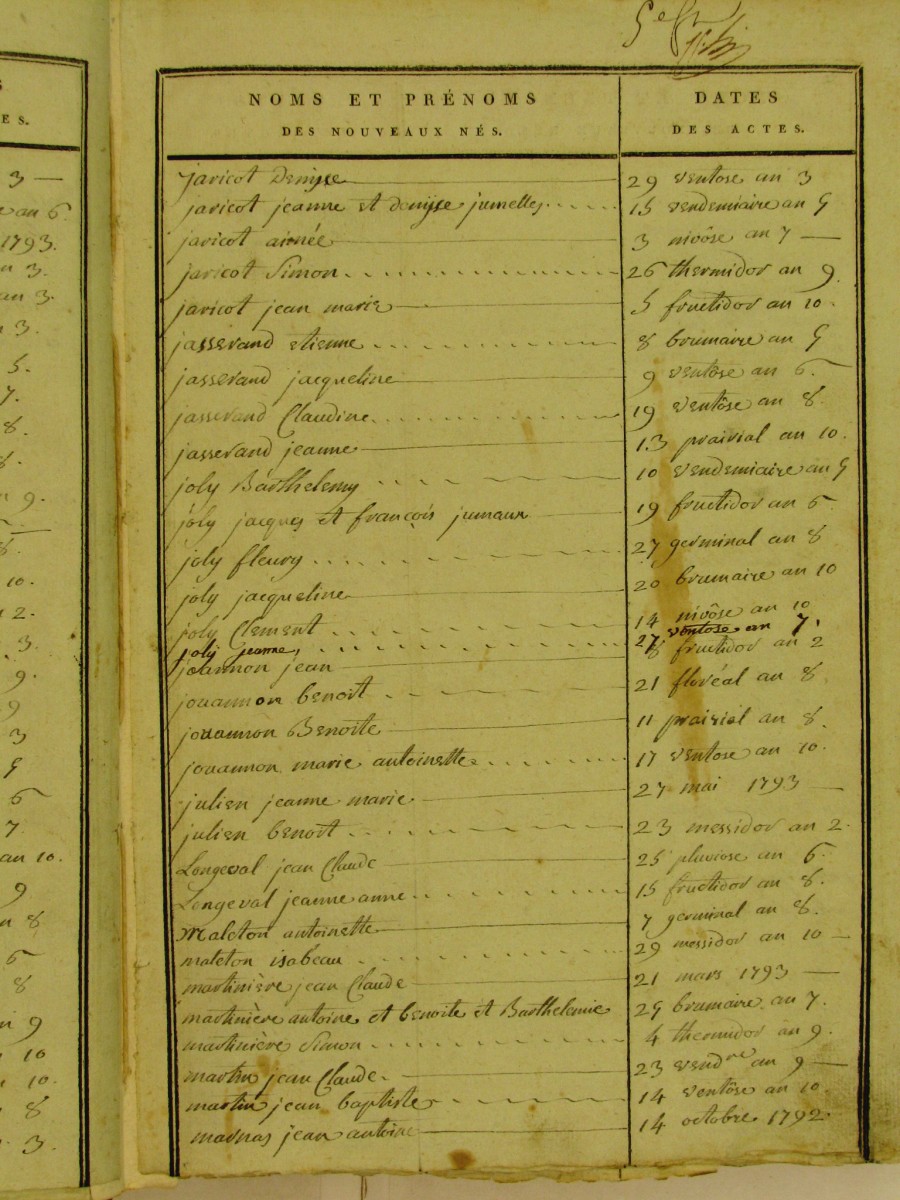 3 —
an 6
1793.
an 3.
an 3.
n 3.
5.
7.
8.
8.
n 9.
8.
10.
2.
3.
9.
9
3
5
6
7.
an 10.
9
n 8
6
8
n 9
10
10.
8
3.
NOMS ET PRÉNOMS DATES
DES NOUVEAUX NÉS. DES ACTES.
jaricot Denyse 29 ventose an 3
jaricot jeanne et denyse jumelles 15 vendemiaire an 5
jaricot aimée 3 nivôse an 7 —
jaricot Simon 26 thermidor an 9.
jaricot jean marie 5 fructidor an 10.
jasserand etienne 8 brumaire an 5
jasserand jacqueline 9 ventôse an 6.
jasserand Claudine 19 ventôse an 8.
jasserand jeanne 13 prairial an 10.
joly Barthelemy 10 vendemiaire an 5
joly jacques et françois jumaux 19 fructidor an 6
joly fleury 27 germinal an 8
joly jacqueline 20 brumaire an 10
joly Clement 14 nivôse an 10
joly jeanne 27 ventose an 7.
jouannon jean 8 fructidor an 2
jouannon benoit 21 floréal an 8
jouannon Benoite 11 prairial an 8.
jouannon marie antoinette 17 ventose an 10.
julien jeanne marie 27 mai 1793 —
julien benoit 23 messidor an 2.
Longeval jean Claude 25 pluviose an 6.
Longeval jeanne anne 15 fructidor an 8.
maleton antoinette 7 germinal an 8.
maleton isabeau 29 messidor an 10 —
martinière jean Claude 21 mars 1793 —
martinière antoine et benoite et Barthelemie 25 brumaire an 7.
martiniere Simon 4 thermidor an 9.
martin jean Claude 23 vendre an 9 —
martin jean baptiste 14 ventôse an 10.
marnas jean antoine 14 octobre 1792.